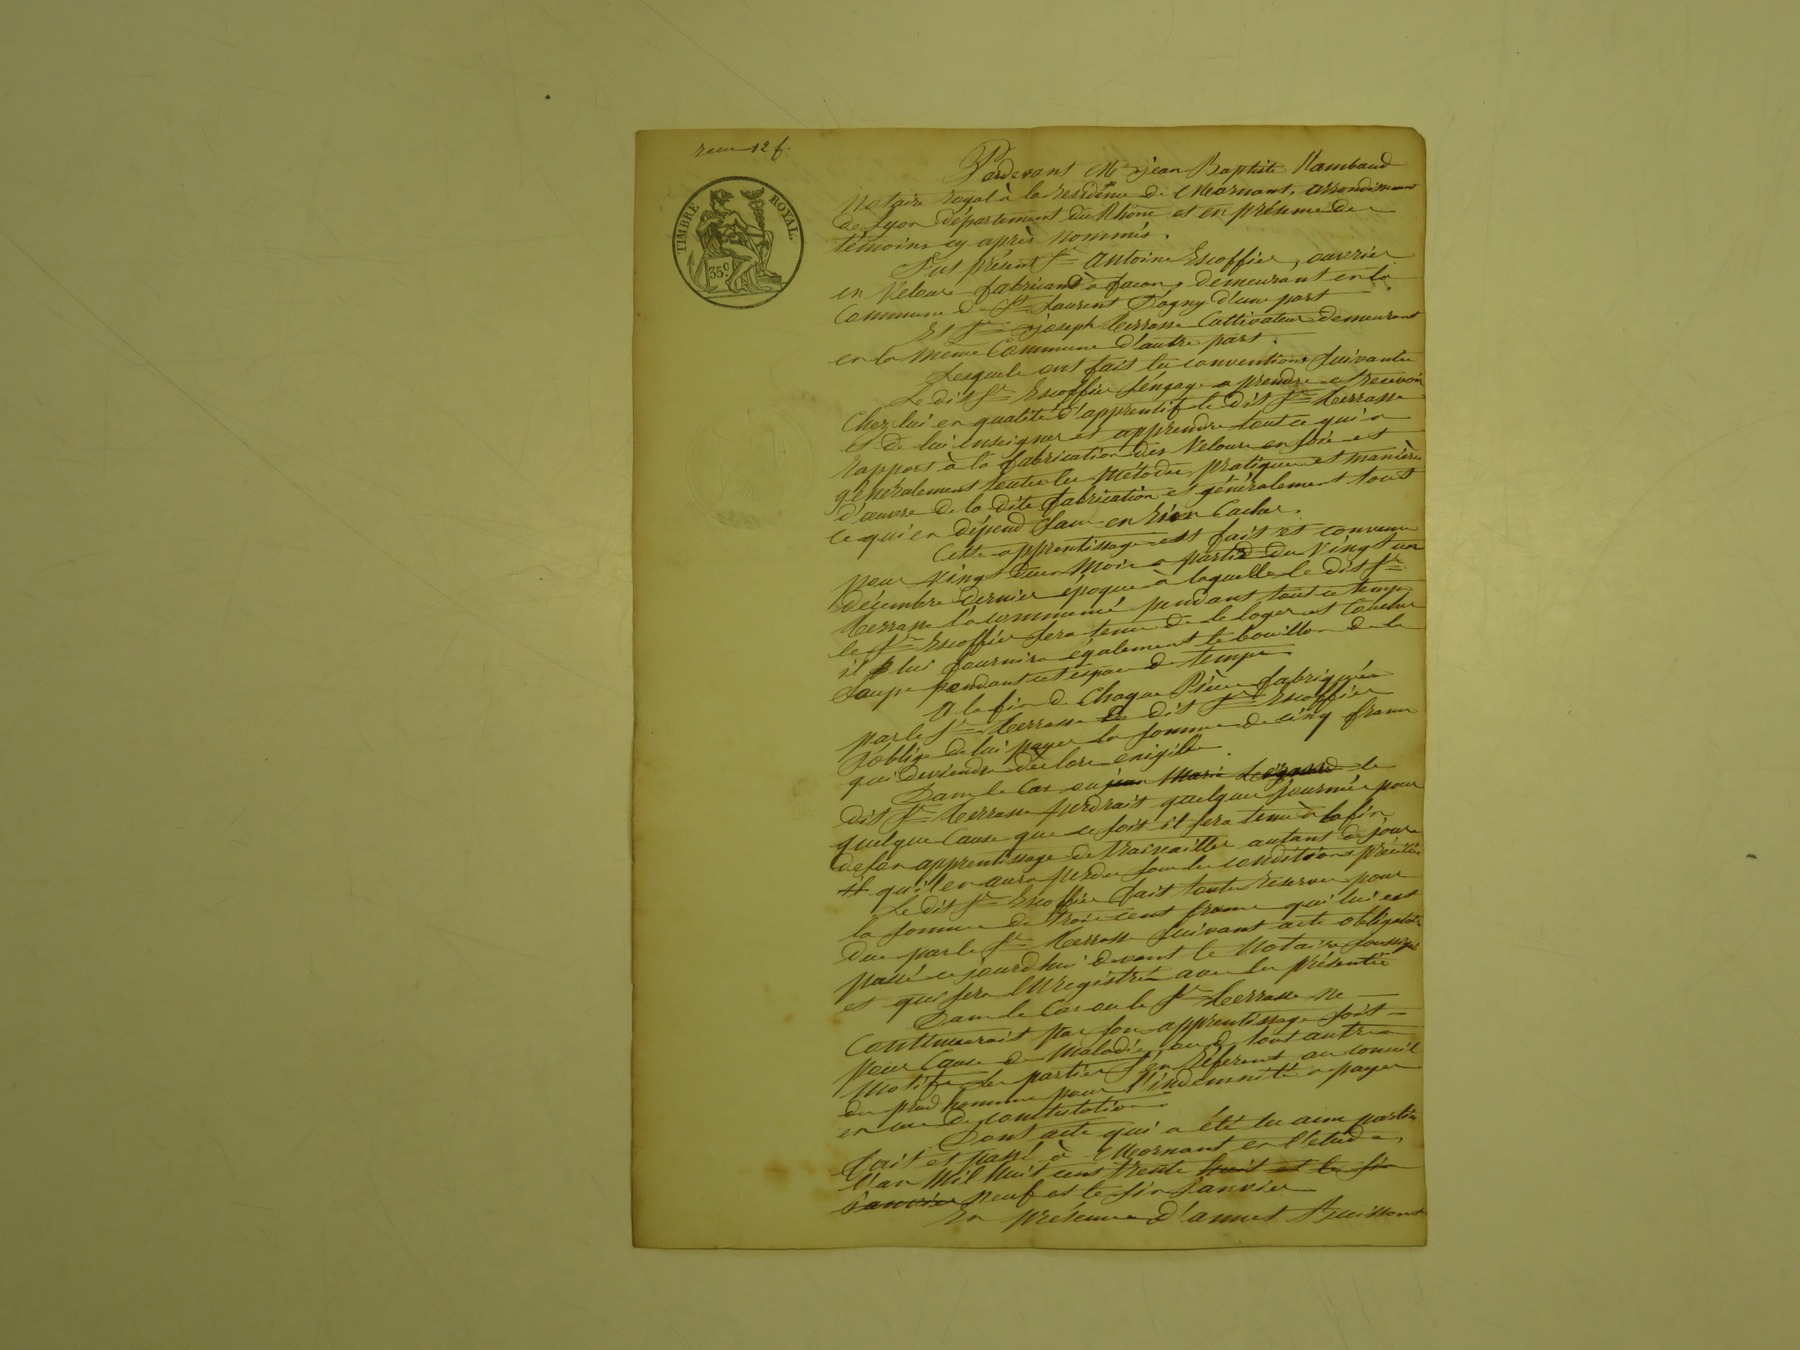 reçu 12 f.
TIMBRE ROYAL.
35 c
Pardevant Me jean Baptiste Rambaud
Notaire royal à la résidence de Mornant, arrondissement
de Lyon département du Rhône et en présence des
témoins cy après nommés.
Fut présent Sr Antoine Escoffier, ouvrier
en Velours fabricant à façon, demeurant en la
Commune de St Laurent Dagny d'une part
Et Sr joseph Terrasse Cultivateur demeurant
en la même Commune d'autre part.
Lesquels ont fait les conventions suivantes
Le dit Sr Escoffier s'engage a prendre et recevoir
Chez lui en qualité d'apprentif le dit Sr Terrasse
et de lui enseigner et apprendre tout ce qui a
rapport à la fabrication des Velours en soie et
généralement toutes les métodes, pratiques et manières
d'œuvre de la dite fabrication et généralement tout
ce qui en dépend sans en rien Cacher.
Cette apprentissage est fait et convenu
pour vingt deux mois a partir du vingt un
décembre dernier époque à laquelle le dit Sr
Terrasse l'a commencé pendant tout ce temps
le Sr Escoffier sera tenu de le loger et coucher
il lui fournira également le bouillon de la
soupe pendant cet espace de temps.
A la fin de Chaque Pièce fabriquée
par le Sr Terrasse Le dit Sr Escoffier
s'oblige de lui payer la somme de cinq francs
qui deviendra dès lors exigible.
Dans le Cas ou jean Marie le
dit Sr Terrasse perdrait quelques journées pour
quelque Cause que ce soit il sera tenu à la fin
de son apprentissage de travailler autant de jours
qu'il en aura perdu sous les conditions précitées
Le dit Sr Escoffier fait toutes réserves pour
la somme de trois cent francs qui lui est
due par le Sr Terrasse suivant acte obligatoire
passé ce jourd'hui devant le Notaire soussigné
et qui sera Enregistré avec les présentes
Dans le Cas ou le Sr Terrasse ne
Continuerait pas son apprentissage soit
pour Cause de maladie ou de tout autre
motif les parties s'en réfèrent au conseil
des prud'hommes pour l'indemnité a payer
en cas de contestation.
Dont acte qui a été lu aux parties
fait et passé à Mornant en l'étude,
l'an Mil huit cent trente huit et le six
janvier neuf et le six Janvier
En présence d'annet Buisson